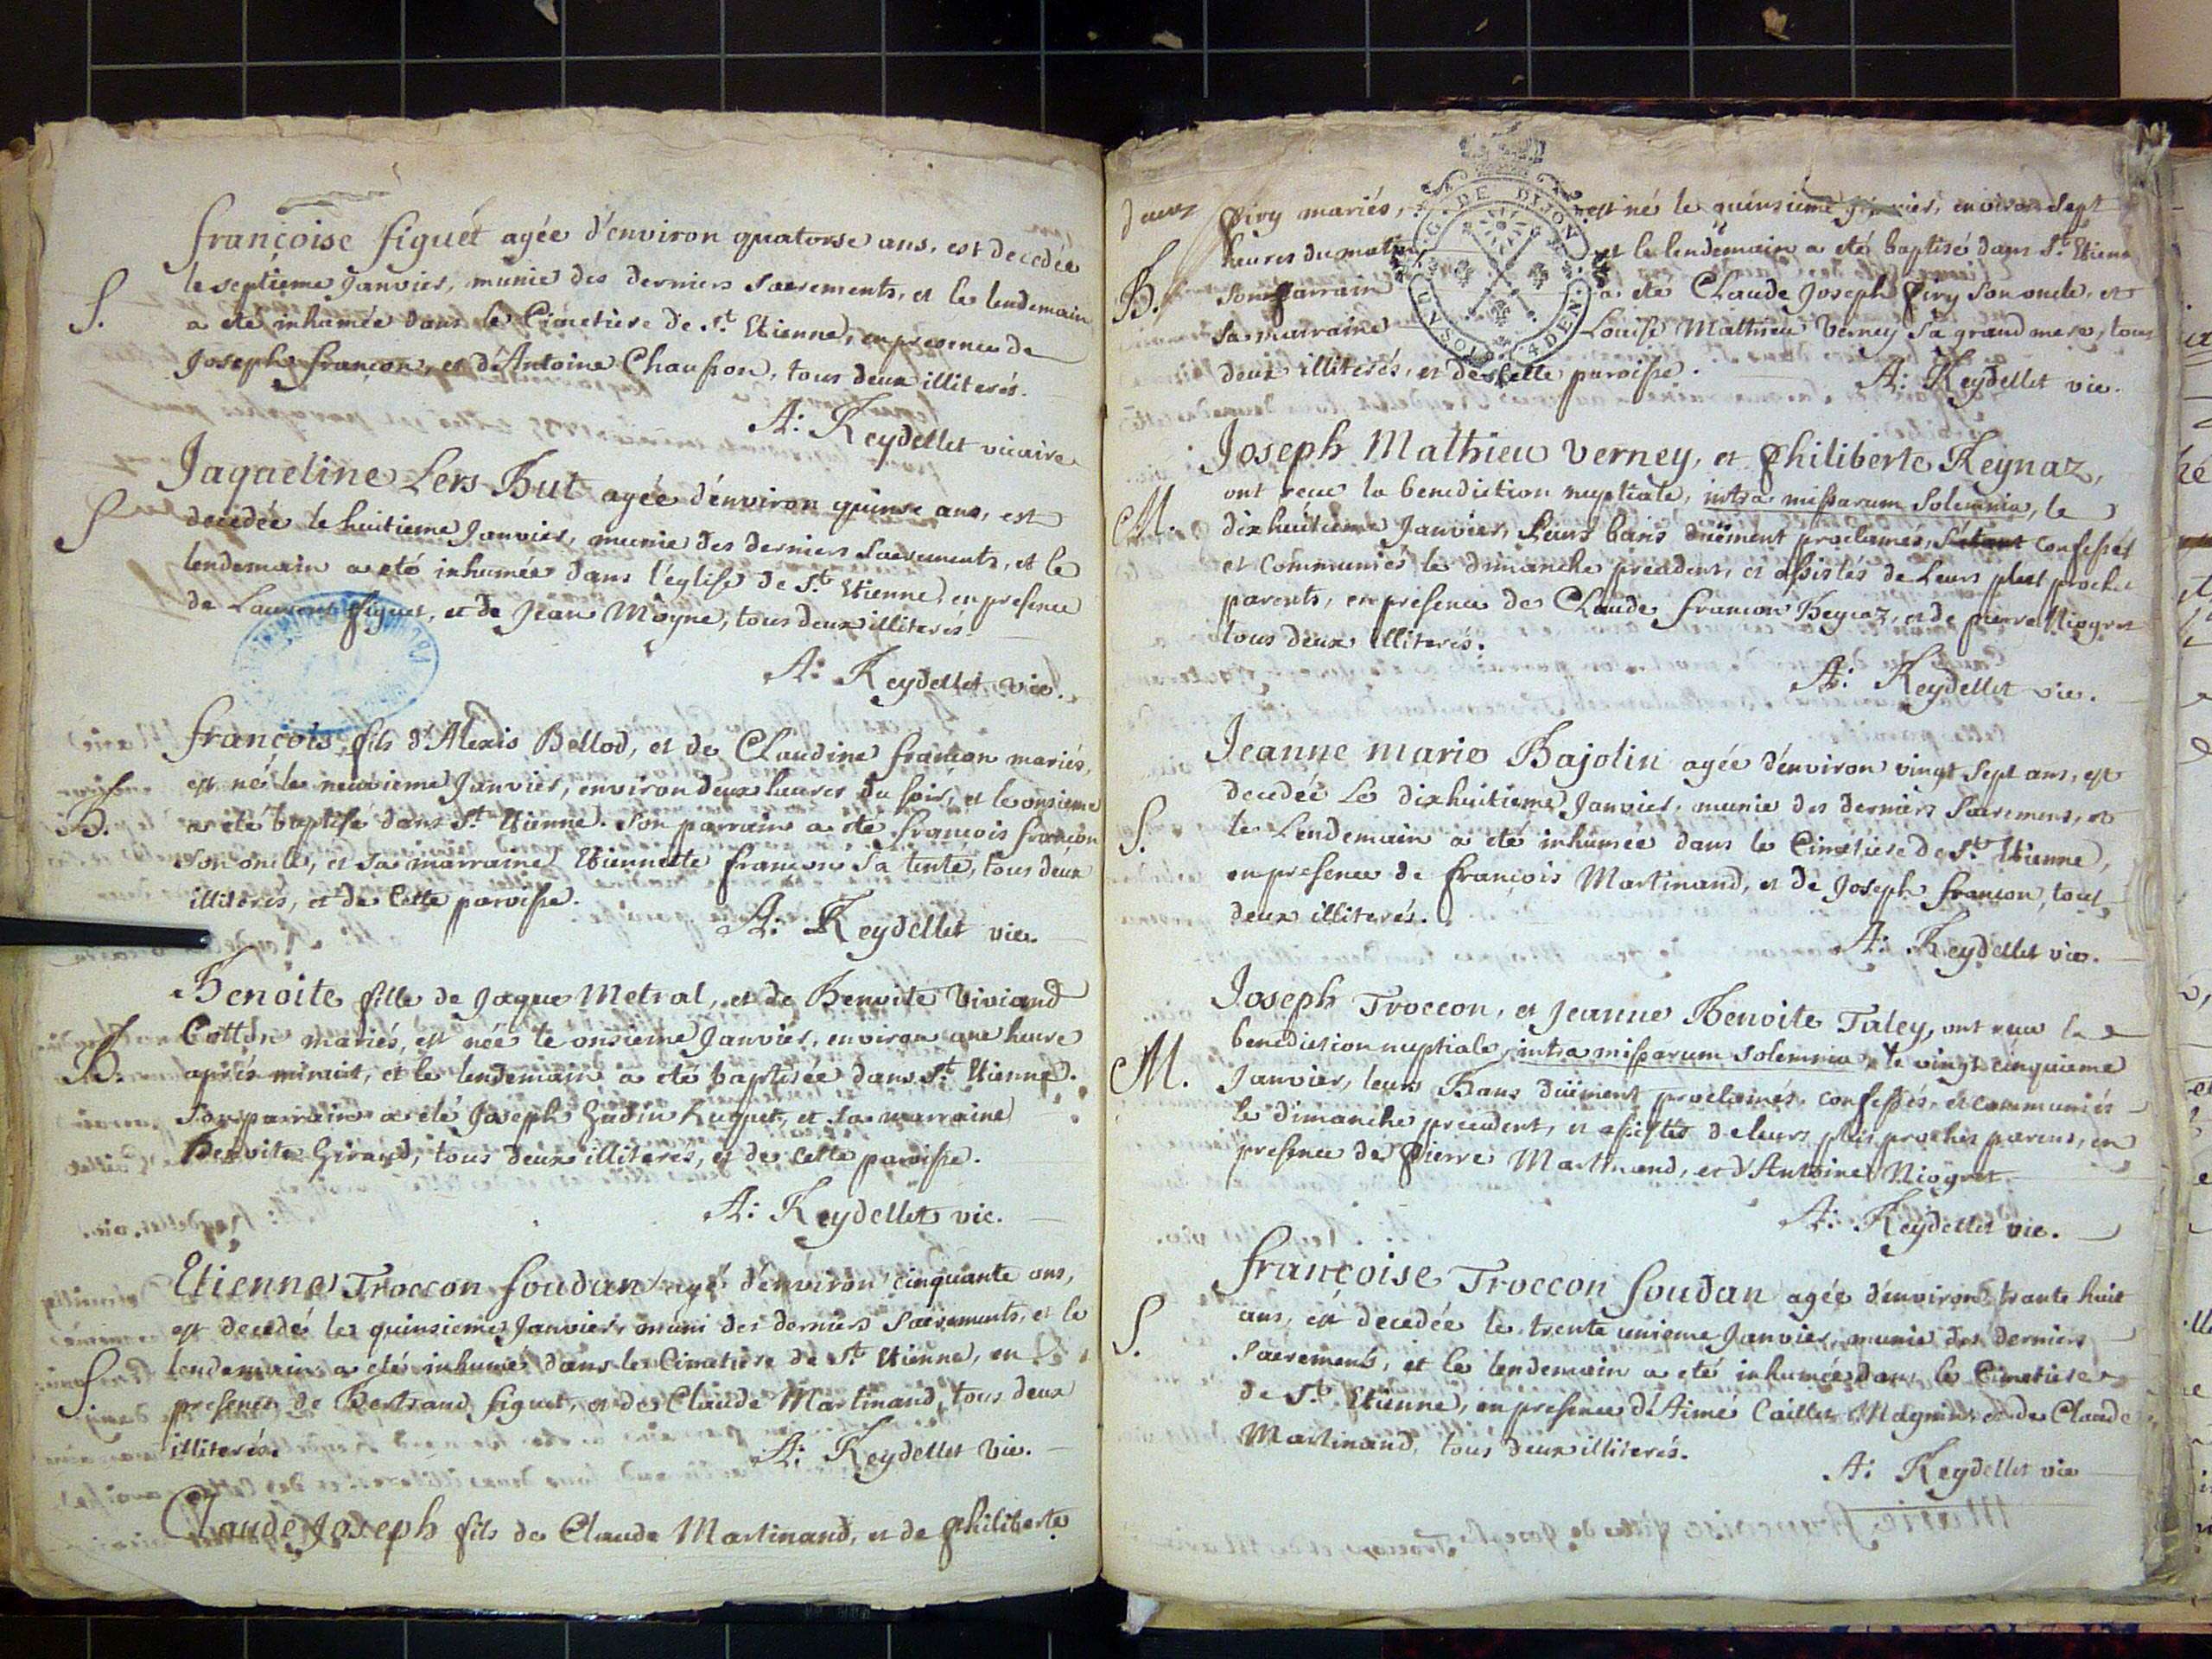 françoise figuét agée d'environ quatorse ans, est decedée
le septieme Janvier, munie des derniers sacrements, et le lendemain
S.
a eté inhumée dans le Cimetiere de St. Etienne, en presence de
Joseph françon, et d'Antoine Chausson, tous deux illiterés.
A: Reydellet vicaire
Jaqueline Lers But agée d'environ quinse ans, est
S
decedée le huitieme Janvier, munie des derniers sacrements, et le
lendemain a eté inhumée dans l'église de St. Etienne, en presence
de Laurent figuet, et de Jean Moyne, tous deux illiterés.
A: Reydellet vic.
françois, fils d'Alexis Bellod, et de Claudine françon mariés,
est né le neuvieme Janvier, environ deux heures du soir, et le onsieme
B.
a eté baptisé dans St. Etienne. Son parrain a eté françois françon
son oncle, et sa marraine Etiennette françon sa tente, tous deux
illiterés, et de Cette paroisse.
A: Reydellet vic.
Benoite fille de Jaque Metral, et de Benoite Viviand
Cotton mariés, est née le onsieme Janvier, environ une heure
B.
aprés minuit, et le lendemain a eté baptisée dans St. Etienne.
Son parrain a eté Joseph Gudin Huguet, et sa marraine
Benoite Giraud, tous deux illiterés, et de Cette paroisse.
A: Reydellet vic.
Etienne Troccon soudan agé d'environ cinquante ans,
est decedé le quinsieme Janvier, muni des derniers sacrements, et le
S.
lendemain a eté inhumé dans le Cimetiere de St. Etienne, en
presence de Bertrand figuet, et de Claude Martinand, tous deux
illiterés.
A: Reydellet vic.
Claude Joseph fils de Claude Martinand, et de philiberte
Piry mariés, est né le quinsieme Janvier, environ sept
heures du matin et le lendemain a eté baptisé dans St. Etienne
B.
son parrain a eté Claude Joseph Piry son oncle, et
sa marraine Louise Mathieu Verney sa grand mere, tous
deux illiterés, et de Cette paroisse.
G. DE DIJON
UN SOL 4 DEN.
A: Reydellet vic.
Joseph Mathieu Verney, et Philiberte Reynaz,
ont recu la benediction nuptiale, intra missarum solemnia, le
M.
dixhuitieme Janvier, Leurs bans düement proclamés, s'étant confessés
et communiés le dimanche precedent, et assistés de Leurs plus proches
parents, en presence de Claude françon Reynaz, et de pierre Niogret
tous deux illiterés.
A: Reydellet vic.
Jeanne marie Bajolin agée d'environ vingt sept ans, est
decedée Le dixhuitieme Janvier, munie des derniers sacremens, et
S.
le Lendemain a eté inhumée dans le Cimetiere de St. Etienne,
en presence de françois Martinand, et de Joseph françon, tous
deux illiterés.
A: Reydellet vic.
Joseph Troccon, et Jeanne Benoite Taley, ont recu la
benediction nuptiale, intra missarum solemnia, le vingt cinquieme
M.
Janvier, leurs Bans düement proclamés, confessés, et communiés
le dimanche precedent, et assistés de leurs plus proches parens, en
presence de Pierre Martinand, et d'Antoine Niogret.
A: Reydellet vic.
françoise Troccon soudan agée d'environ trante huit
ans, est decedée le trente unieme Janvier, munie des derniers
S.
sacremens, et le lendemain a eté inhumée dans le Cimetiere
de St. Etienne, en presence d'Aimé Caillet Magnin et de Claude
Martinand, tous deux illiterés.
A: Reydellet vic